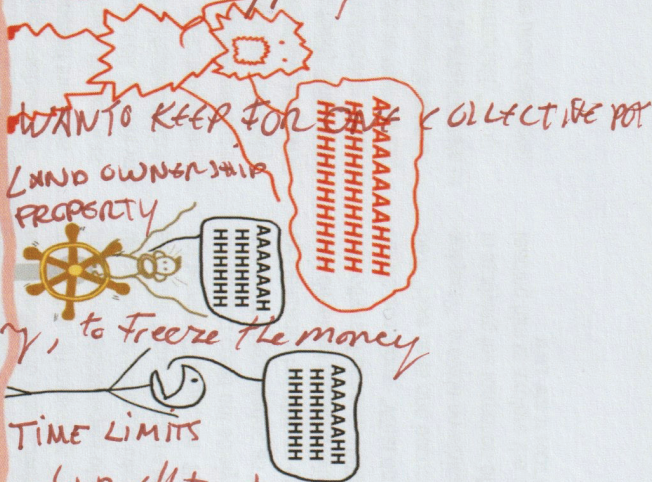 WANTO KEEP FOR ONE COLLECTIVE POT
AAAAAAAAHHH
HHHHHHHHHHHH
HHHHHHHHHHHH
LAND OWNERSHIP
PROPERTY
AAAAAAH
HHHHHHH
HHHHHH
to Freeze the money
AAAAAAHH
HHHHHHH
HHHHHHHH
TIME LIMITS